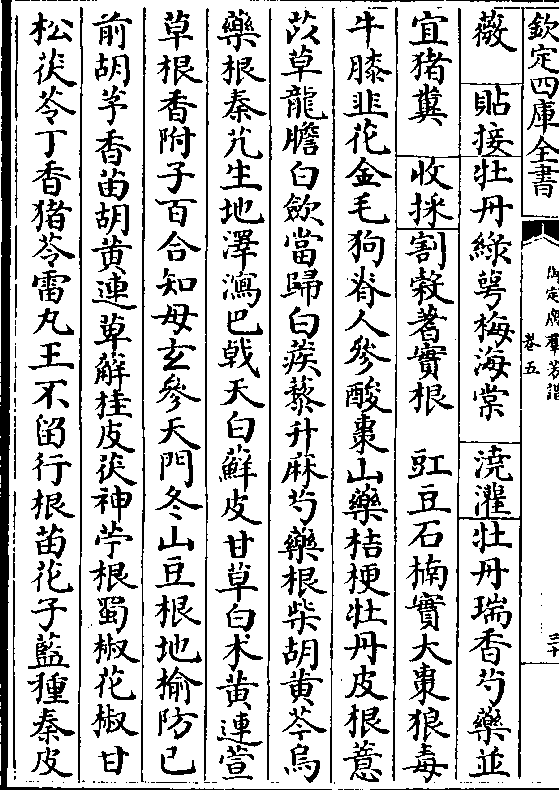 欽定四庫全書
御定廣羣芳譜
卷五
二十
薇　貼接　牡丹綠萼梅海棠　澆灌　牡丹瑞香芍藥並
宜猪糞　收採　割穀蓍實根　豇豆石楠實大棗狼毒
牛膝韭花金毛狗脊人參酸棗山藥桔梗牡丹皮根薏
苡草龍膽白歛當歸白蒺藜升麻芍藥根柴胡黄芩烏
藥根秦艽生地澤瀉巴戟天白蘚皮甘草白术黄連萱
草根香附子百合知母玄參天門冬山豆根地榆防已
前胡芧香苗胡黄連萆薢桂皮茯神苧根蜀椒花椒甘
松茯苓丁香猪苓雷丸王不留行根苗花子藍種秦皮